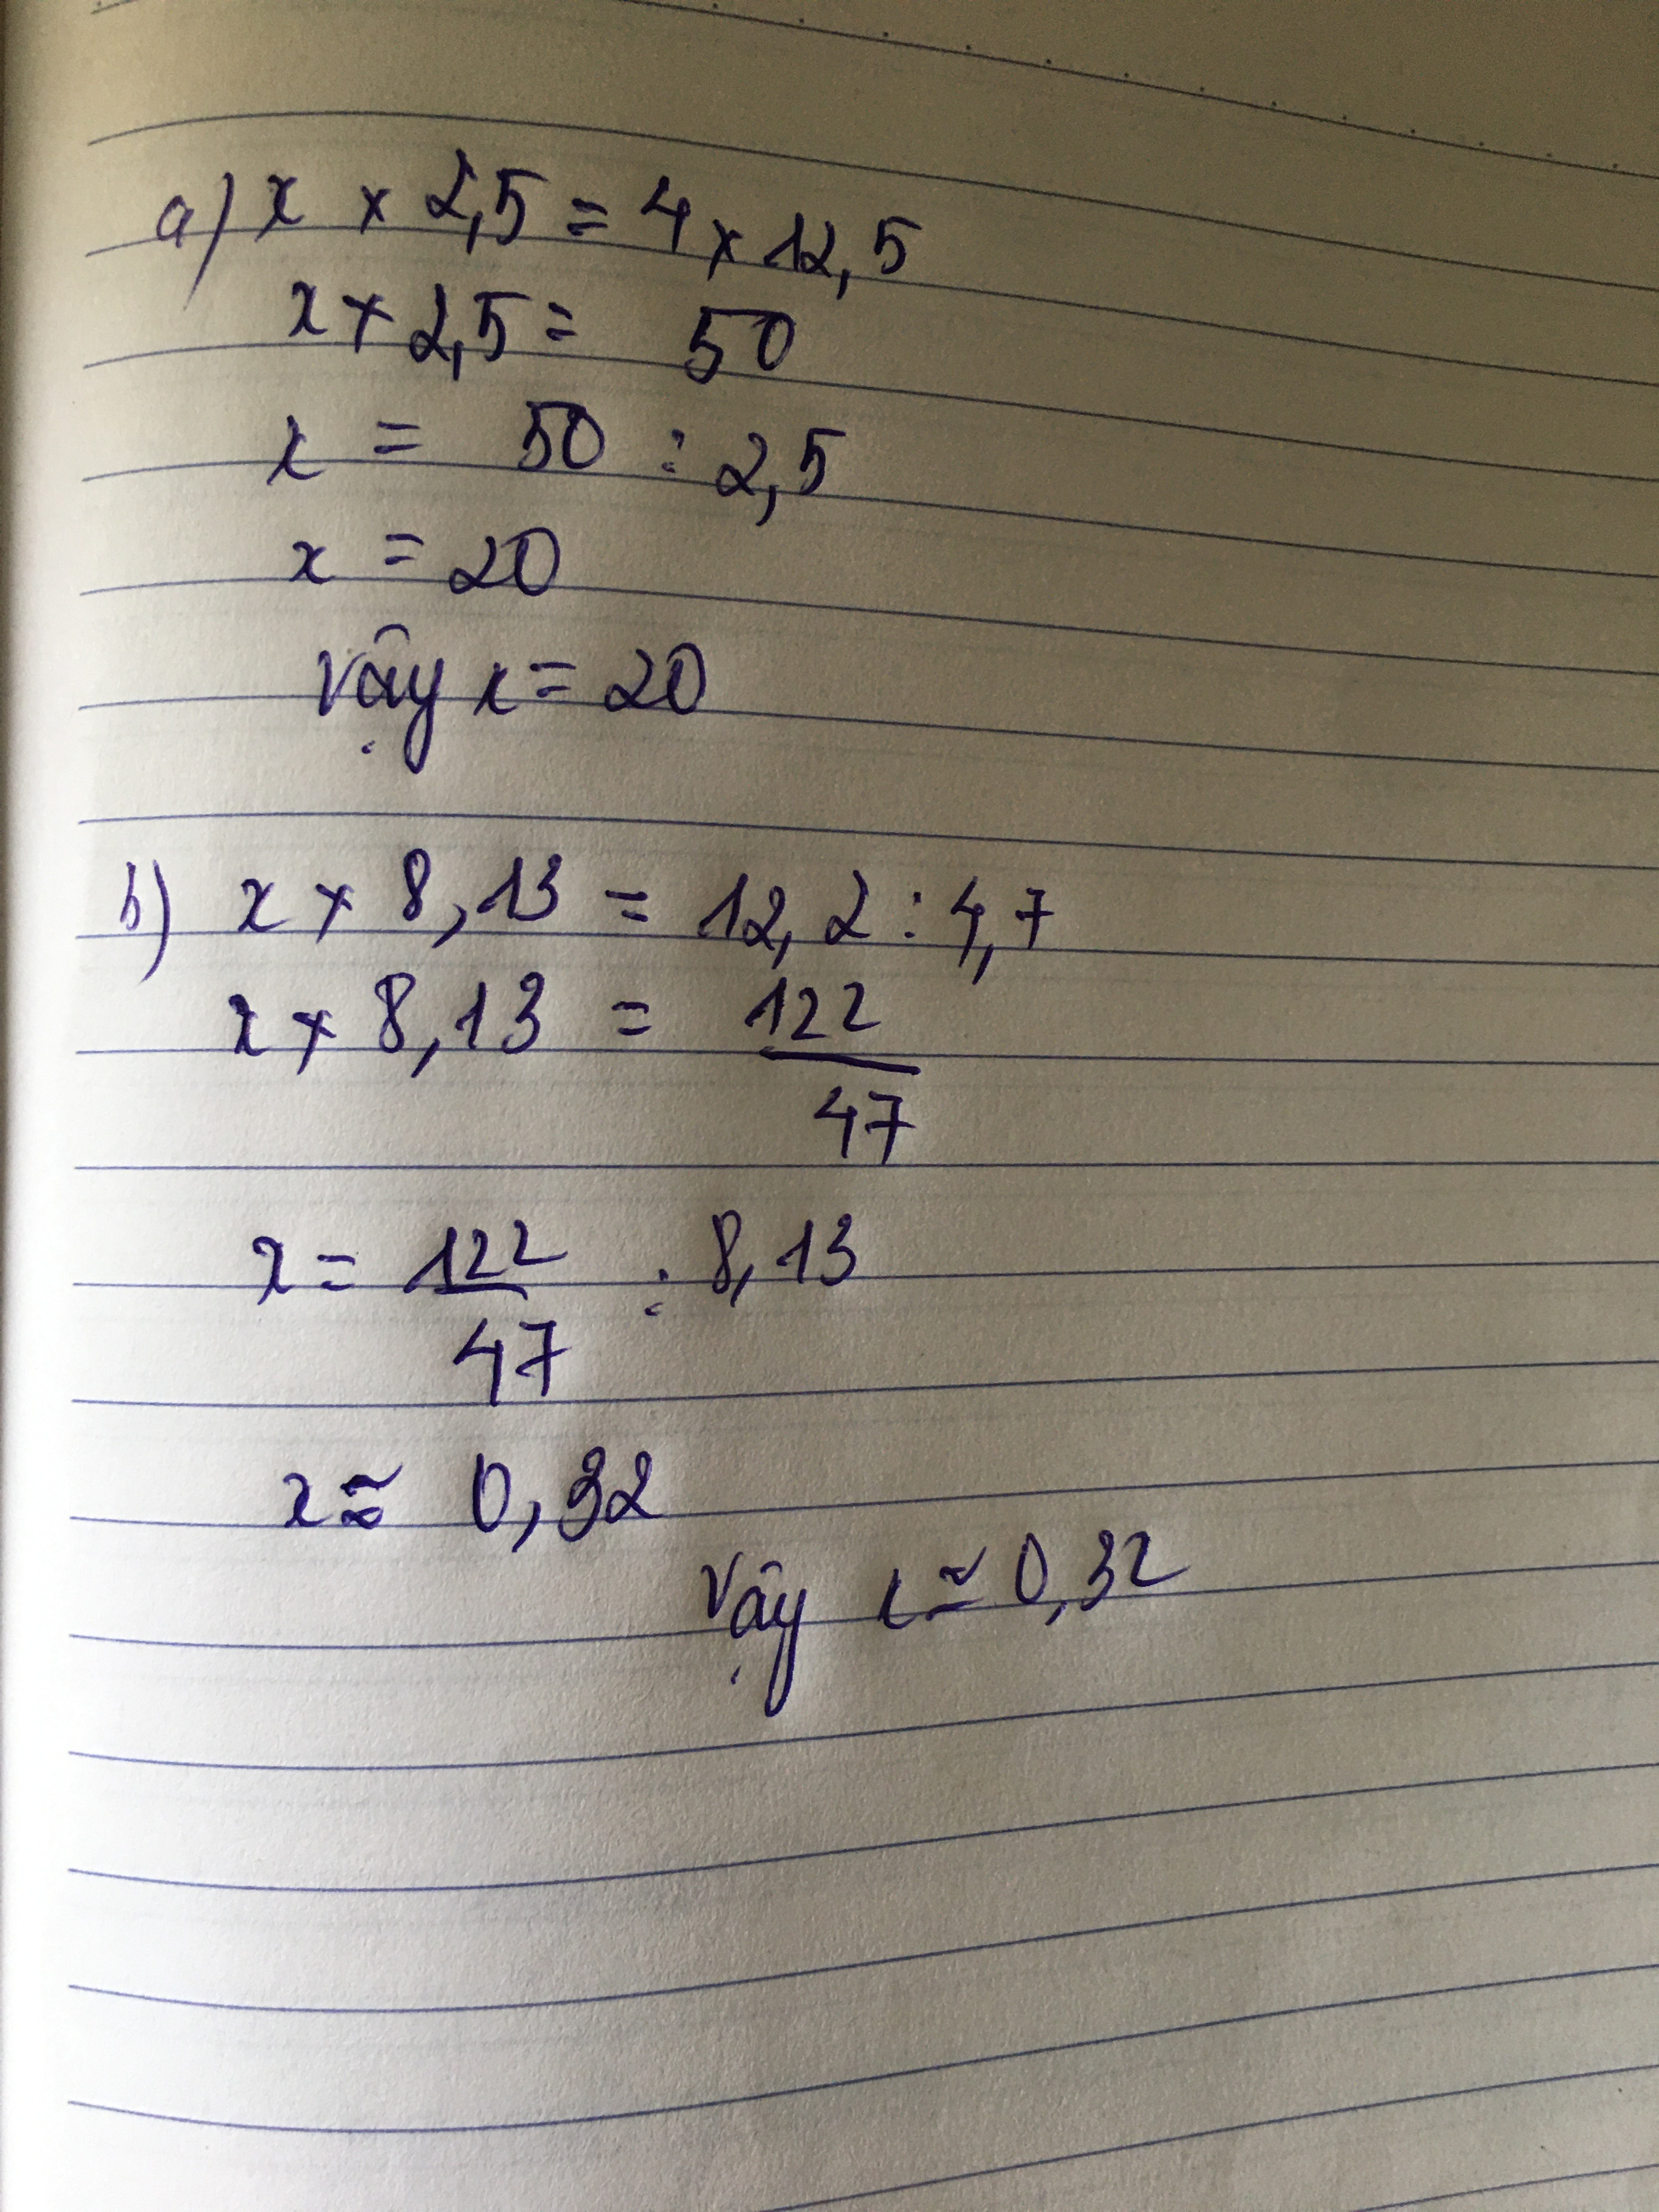 a) x × 2,5 = 4 × 12,5
x × 2,5 = 50
x = 50 : 2,5
x = 20
Vậy x = 20
b) x × 8,13 = 12,2 : 4,7
x × 8,13 = 122/47
x = 122/47 : 8,13
x ≈ 0,32
Vậy x ≈ 0,32